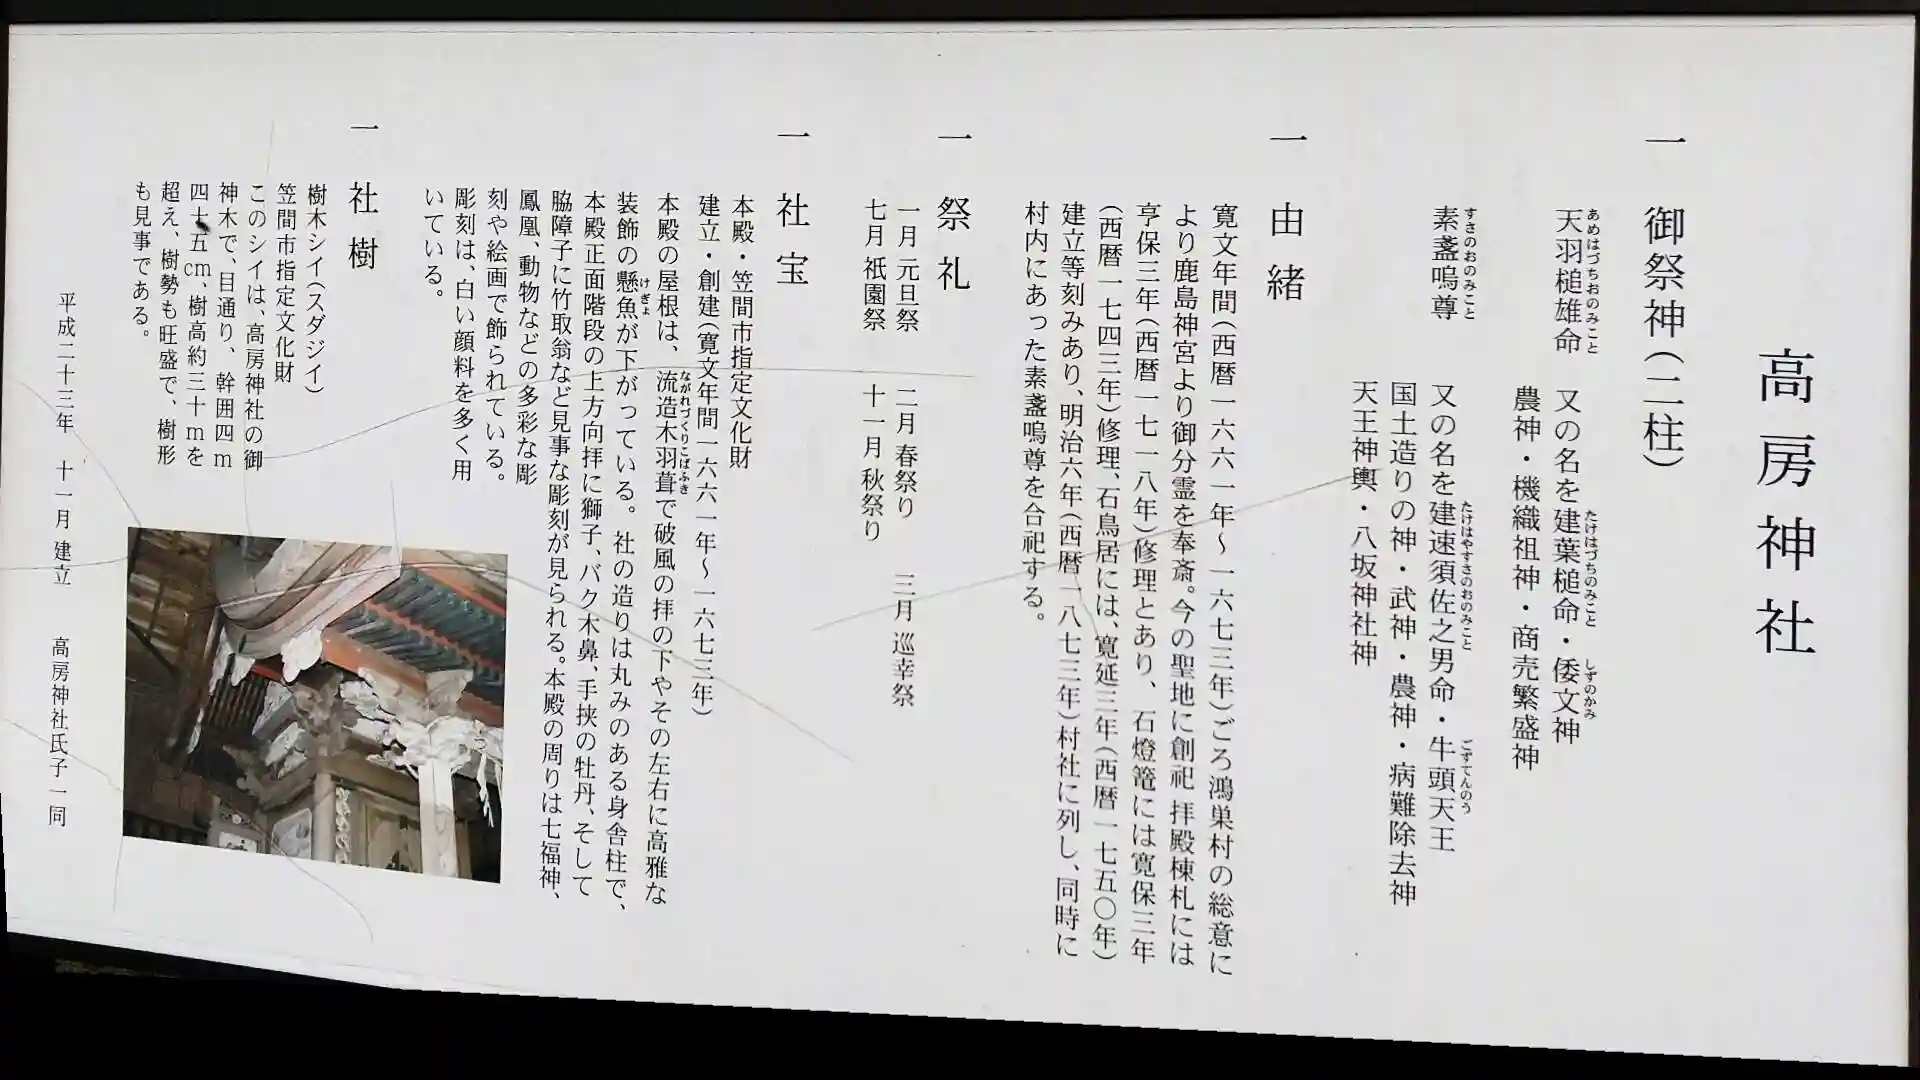 高房神社
一 御祭神(二柱)
天羽槌雄命 又の名を建葉槌命・倭文神
あめはづちおのみこと たけはづちのみこと しずのかみ
農神・機織祖神・商売繁盛神
素盞嗚尊 又の名を建速須佐之男命・牛頭天王
すさのおのみこと たけはやすさのおのみこと ごずてんのう
国土造りの神・武神・農神・病難除去神
天王神輿・八坂神社神
一 由緒
寛文年間(西暦一六六一年～一六七三年)ごろ鴻巣村の総意に
より鹿島神宮より御分霊を奉斎。今の聖地に創祀 拝殿棟札には
亨保三年(西暦一七一八年)修理とあり、石燈篭には寛保三年
(西暦一七四三年)修理、石鳥居には、寛延三年(西暦一七五〇年)
建立等刻みあり、明治六年(西暦一八七三年)村社に列し、同時に
村内にあった素盞嗚尊を合祀する。
一 祭礼
一月 元旦祭 二月 春祭り 三月 巡幸祭
七月 祇園祭 十一月 秋祭り
一 社宝
本殿・笠間市指定文化財
建立・創建(寛文年間一六六一年～一六七三年)
本殿の屋根は、流造木羽葺で破風の拝の下やその左右に高雅な
ながれづくりこばふき
装飾の懸魚が下がっている。社の造りは丸みのある身舎柱で、
けぎょ
本殿正面階段の上方向拝に獅子、バク木鼻、手挟の牡丹、そして
脇障子に竹取翁など見事な彫刻が見られる。本殿の周りは七福神、
鳳凰、動物などの多彩な彫
刻や絵画で飾られている。
彫刻は、白い顔料を多く用
いている。
一 社樹
樹木シイ(スダジイ)
笠間市指定文化財
このシイは、高房神社の御
神木で、目通り、幹囲四m
四十五cm、樹高約三十mを
超え、樹勢も旺盛で、樹形
も見事である。
平成二十三年 十一月 建立 高房神社氏子一同